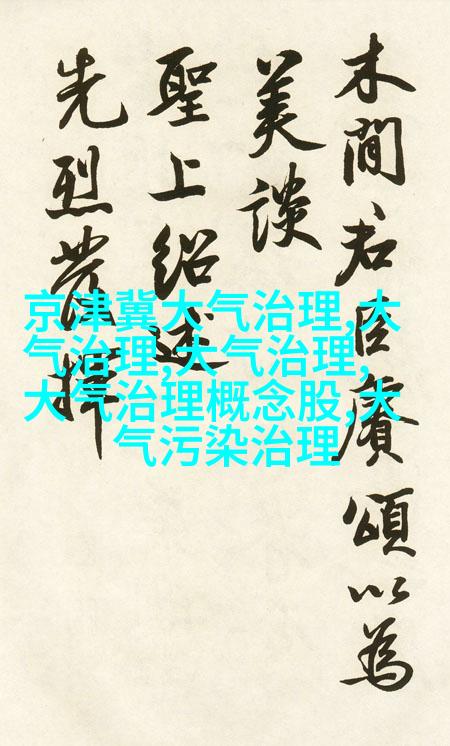 木間君臣賡頌以為
美談
聖上紹述
先烈發揮
京津冀大气治理,大
气治理,大气治理,
大气治理概念股,大
气污染治理